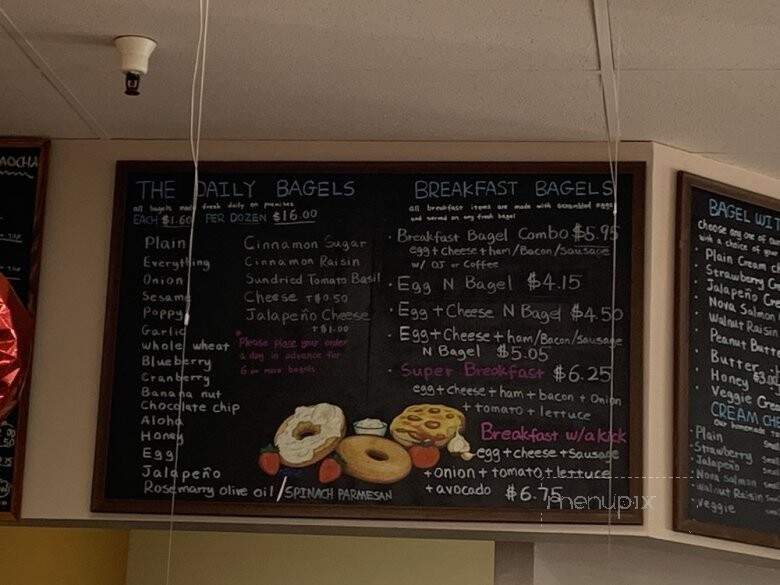 MOCHA
THE DAILY BAGELS
all bagels made fresh daily on premises
EACH $1.60 PER DOZEN $16.00
Plain
Everything
Onion
Sesame
Poppy
Garlic
whole wheat
Blueberry
Cranberry
Banana nut
Chocolate chip
Aloha
Honey
Egg
Jalapeño
Rosemarry olive oil / SPINACH PARMESAN
Cinnamon Sugar
Cinnamon Raisin
Sundried Tomato Basil
Cheese +$0.50
Jalapeño Cheese
+$1.00
* Please place your order
a day in advance for
6 or more bagels
BREAKFAST BAGELS
all breakfast items are made with scrambled eggs
and served on any fresh bagel
· Breakfast Bagel Combo $5.95
egg+cheese+ham/Bacon/Sausage
w/ OJ or Coffee
· Egg N Bagel $4.15
· Egg+Cheese N Bagel $4.50
· Egg+Cheese+ham/Bacon/Sausage
N Bagel $5.05
· Super Breakfast $6.25
egg+cheese+ham+bacon+onion
+tomato+lettuce
Breakfast w/a kick
egg+cheese+Sausage
+onion+tomato+lettuce
+avocado $6.75
menupix
BAGEL WIT
Choose any one of our
with a choice of
· Plain Cream C
· Strawberry C
· Jalapeño Cre
· Nova Salmon
· Walnut Raisin
· Peanut Butt
· Butter
· Honey $3.0
· Veggie Gra
CREAM CHE
our homemade
· Plain
· Strawberry
· Jalapeño
· Nova Salmon
· Walnut Raisin
· Veggie